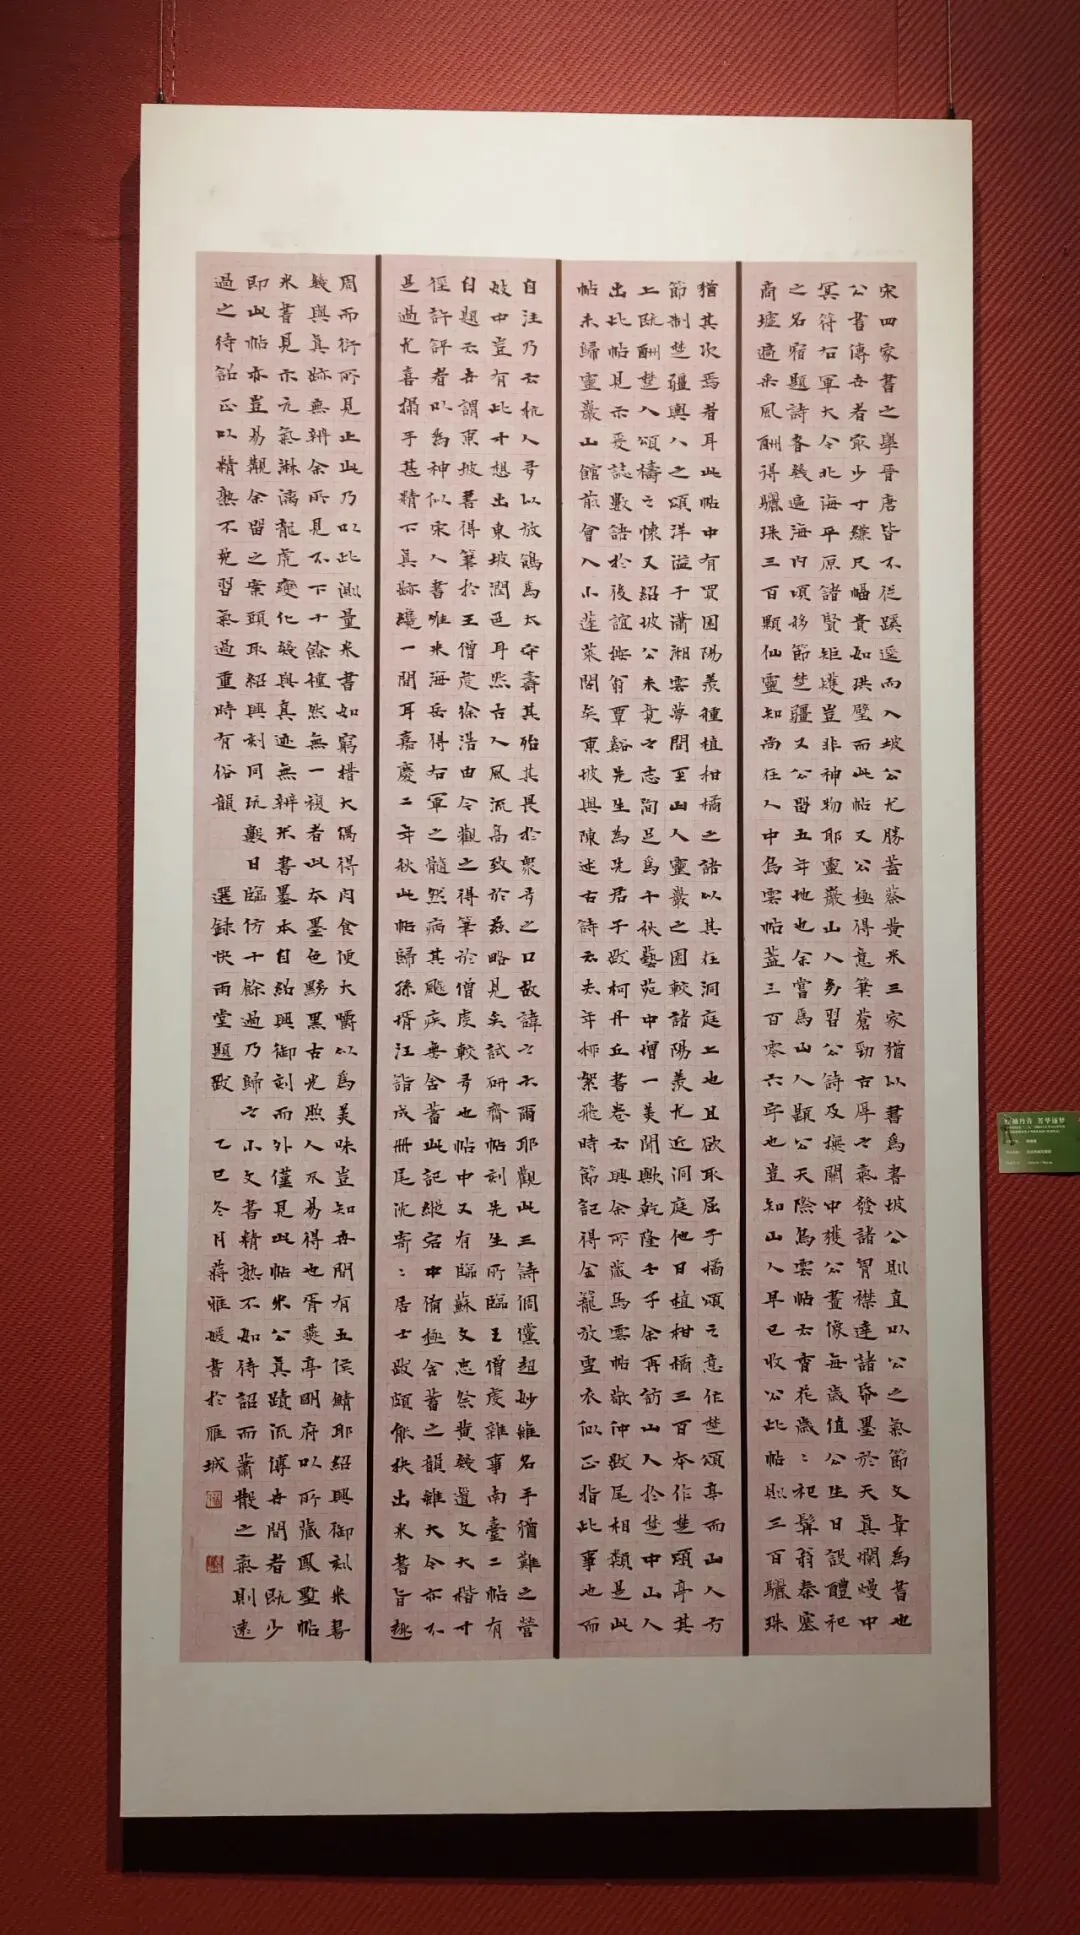 宋四家書之學晉唐皆不從蹊逕而入坡公尤勝蓋蔡黄米三家猶以書為書坡公則直以公之氣節文章為書也
公書傳世者最少寸縑尺幅貴如珙璧而此帖又公極得意筆蒼勁古厚之氣發諸胷襟達諸豪墨於天真爛熳中
冥符右軍大令北海平原諸賢矩矱豈非神物耶靈巖山人夢習公詩及撫關中獲公畫像每歲值公生日設醴祀
之名宿題詩者幾遍海内頃移節楚疆又公留五年地也余嘗為山人題公天際烏雲帖云會花歲〻祀髯翁秦塞
商墟遍采風酬得驪珠三百顆仙靈知尚在人中烏雲帖蓋三百零六字也豈知山人早已收公此帖則三百驪珠
猶其次焉者耳此帖中有買田陽羨種植柑橘之諸以其在洞庭上也且欲取屈子橘頌之意作楚頌亭而山人方
節制楚疆輿人之頌洋溢于瀟湘雲夢間至山人靈巖之園較諸陽羨尤近洞庭他日植柑橘三百本作楚頌亭其
上既酬楚人頌禱之懷又紹坡公未竟之志洵足為千秋藝苑中增一美聞歟乾隆壬子余再訪山人於楚中山人
出此帖見示爰誌數語於後誼按翁覃谿先生為先君子跋柯丹丘書卷云興余所藏烏雲帖敬仲跋尾相類是此
帖未歸靈巖山館前會入小蓬萊閣矣東坡與陳述古詩云去年柳絮飛時節記得金籠放雪衣似正指此事也而
自注乃云杭人多以放鴿為太守壽其殆其畏於衆多之口故諱之不爾耶觀此三詩倜儻超妙雖名手猶難之營
妓中豈有此才想出東坡潤色耳然古人風流高致於兹略見矣試研齋帖刻先生所臨王僧虔雜事南臺二帖有
自題云世謂東坡書得筆於王僧虔徐浩由今觀之得筆於僧虔較多也帖中又有臨蘇文忠祭黄幾道文大楷寸
徑許評者以為神似宋人書唯米海岳得右軍之髓然病其颷疾無含蓄此記縱宕中侑極含蓄之韻雖大令亦不
是過尤喜搨手甚精下真跡纔一間耳嘉慶二年秋此帖歸孫壻汪詣成冊尾沈寄〻居士跋頗能抉出米書旨趣
周而衍所見止此乃以此測量米書如窮措大偶得肉食便大嚼以為美味豈知世間有五侯鯖耶紹興御刻米書
幾與真跡無辨余所見不下十餘種然無一複者此本墨色黝黑古光照人不易得也胥燕亭明府以所藏鳳墅帖
米書見示元氣淋漓龍虎變化幾與真迹無辨米書墨本自紹興御刻而外僅見此帖米公真蹟流傳世間者既少
即此帖亦豈易觀余留之案頭取紹興刻同玩數日臨仿十餘過乃歸之小文書精熟不如待詔而蕭散之氣則遠
過之待詔正以精熟不免習氣過重時有俗韻
選録快雨堂題跋　乙巳冬月蔣雅媛書於雁城